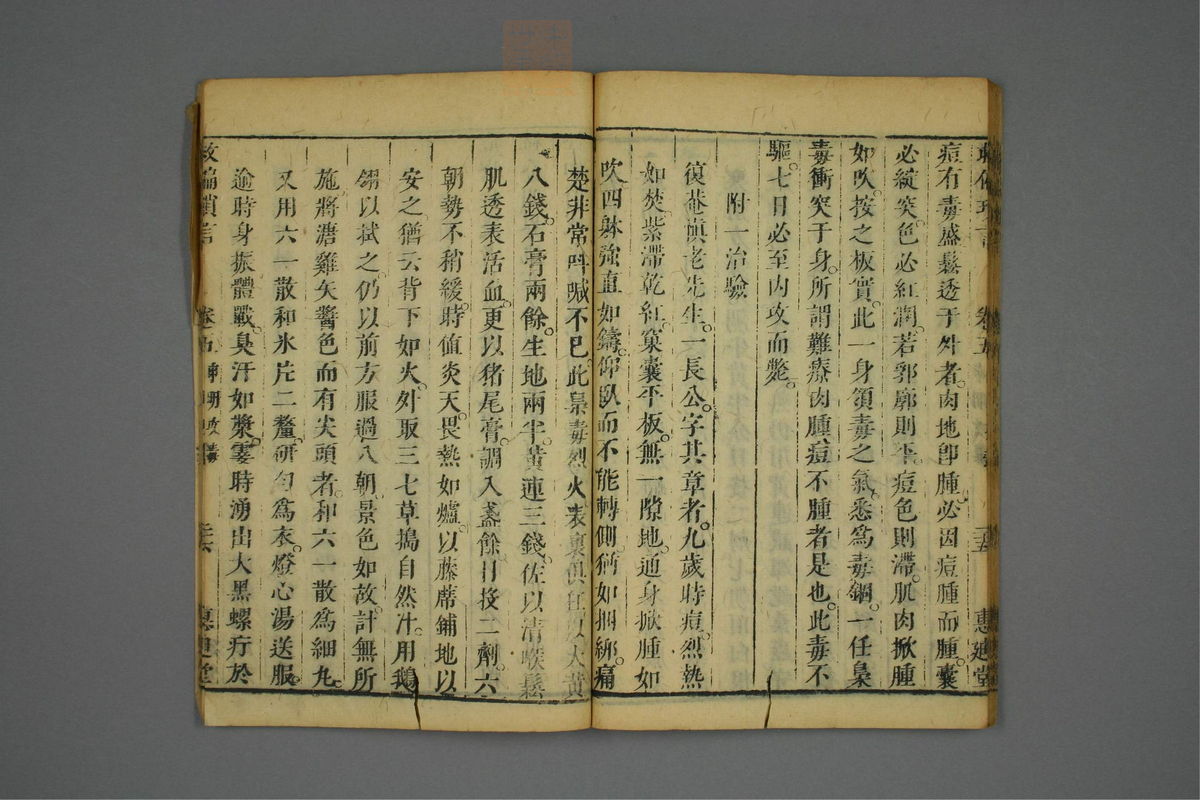 卷五
惠迪堂
痘有毒盛鬆透于外者。肉地卽腫。必因痘腫而腫。囊
必綻突。色必紅潤。若郛廓則平。痘色則滯。肌肉掀腫
如吹。按之板實。此一身領毒之氣。悉爲毒錮。一任梟
毒衝突于身。所謂難療肉腫。痘不腫者是也。此毒不
驅。七日必至內攻而斃。
附一治驗
復菴滇老先生。一長公。字共章者。九歲時痘。烈熱
如焚。紫滯乾紅。窠囊平板。無一隙地。通身掀腫如
吹。四躰強直如鑄。仰臥而不能轉側。猶如捆綁。痛
楚非常。呌喊不已。此梟毒烈火。表裏俱 大黃
八錢。石膏兩餘。生地兩半。黃連三錢。佐以清喉鬆
肌透表活血。更以猪尾膏。調入盞餘。日投二劑。六
朝勢不稍緩。時值炎天。畏熱如爐。以藤席鋪地以
安之。猶云背下如火。外取三七草搗自然汁。用鵝
翎以拭之。仍以前方服過八朝。景色如故。計無所
施。將溏雞矢醬色而有尖頭者。和六一散爲細丸。
又用六一散和氷片二釐。研勻爲衣。燈心湯送服。
逾時身振體戰。臭汗如漿。霎時湧出大黑螺疔於
救偏瑣言
卷五
惠迪堂